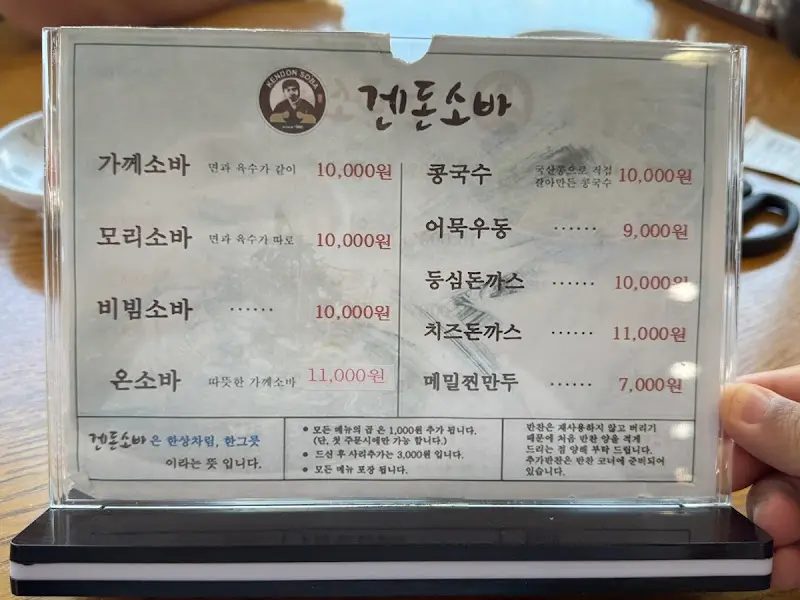 KENDON SOBA
since 1986
겐돈소바
가께소바 면과 육수가 같이 10,000원
모리소바 면과 육수가 따로 10,000원
비빔소바 ...... 10,000원
온소바 따뜻한 가께소바 11,000원
콩국수 국산콩으로 직접 갈아만든 콩국수 10,000원
어묵우동 ...... 9,000원
등심돈까스 ...... 10,000원
치즈돈까스 ...... 11,000원
메밀찐만두 ...... 7,000원
겐돈소바은 한상차림, 한그릇
이라는 뜻 입니다.
● 모든 메뉴의 곱 은 1,000원 추가 됩니다.
(단, 첫 주문시에만 가능 합니다.)
● 드신 후 사리추가는 3,000원 입니다.
● 모든 메뉴 포장 됩니다.
반찬은 재사용하지 않고 버리기
때문에 처음 반찬 양을 적게
드리는 점 양해 부탁 드립니다.
추가반찬은 반찬 코너에 준비되어
있습니다.